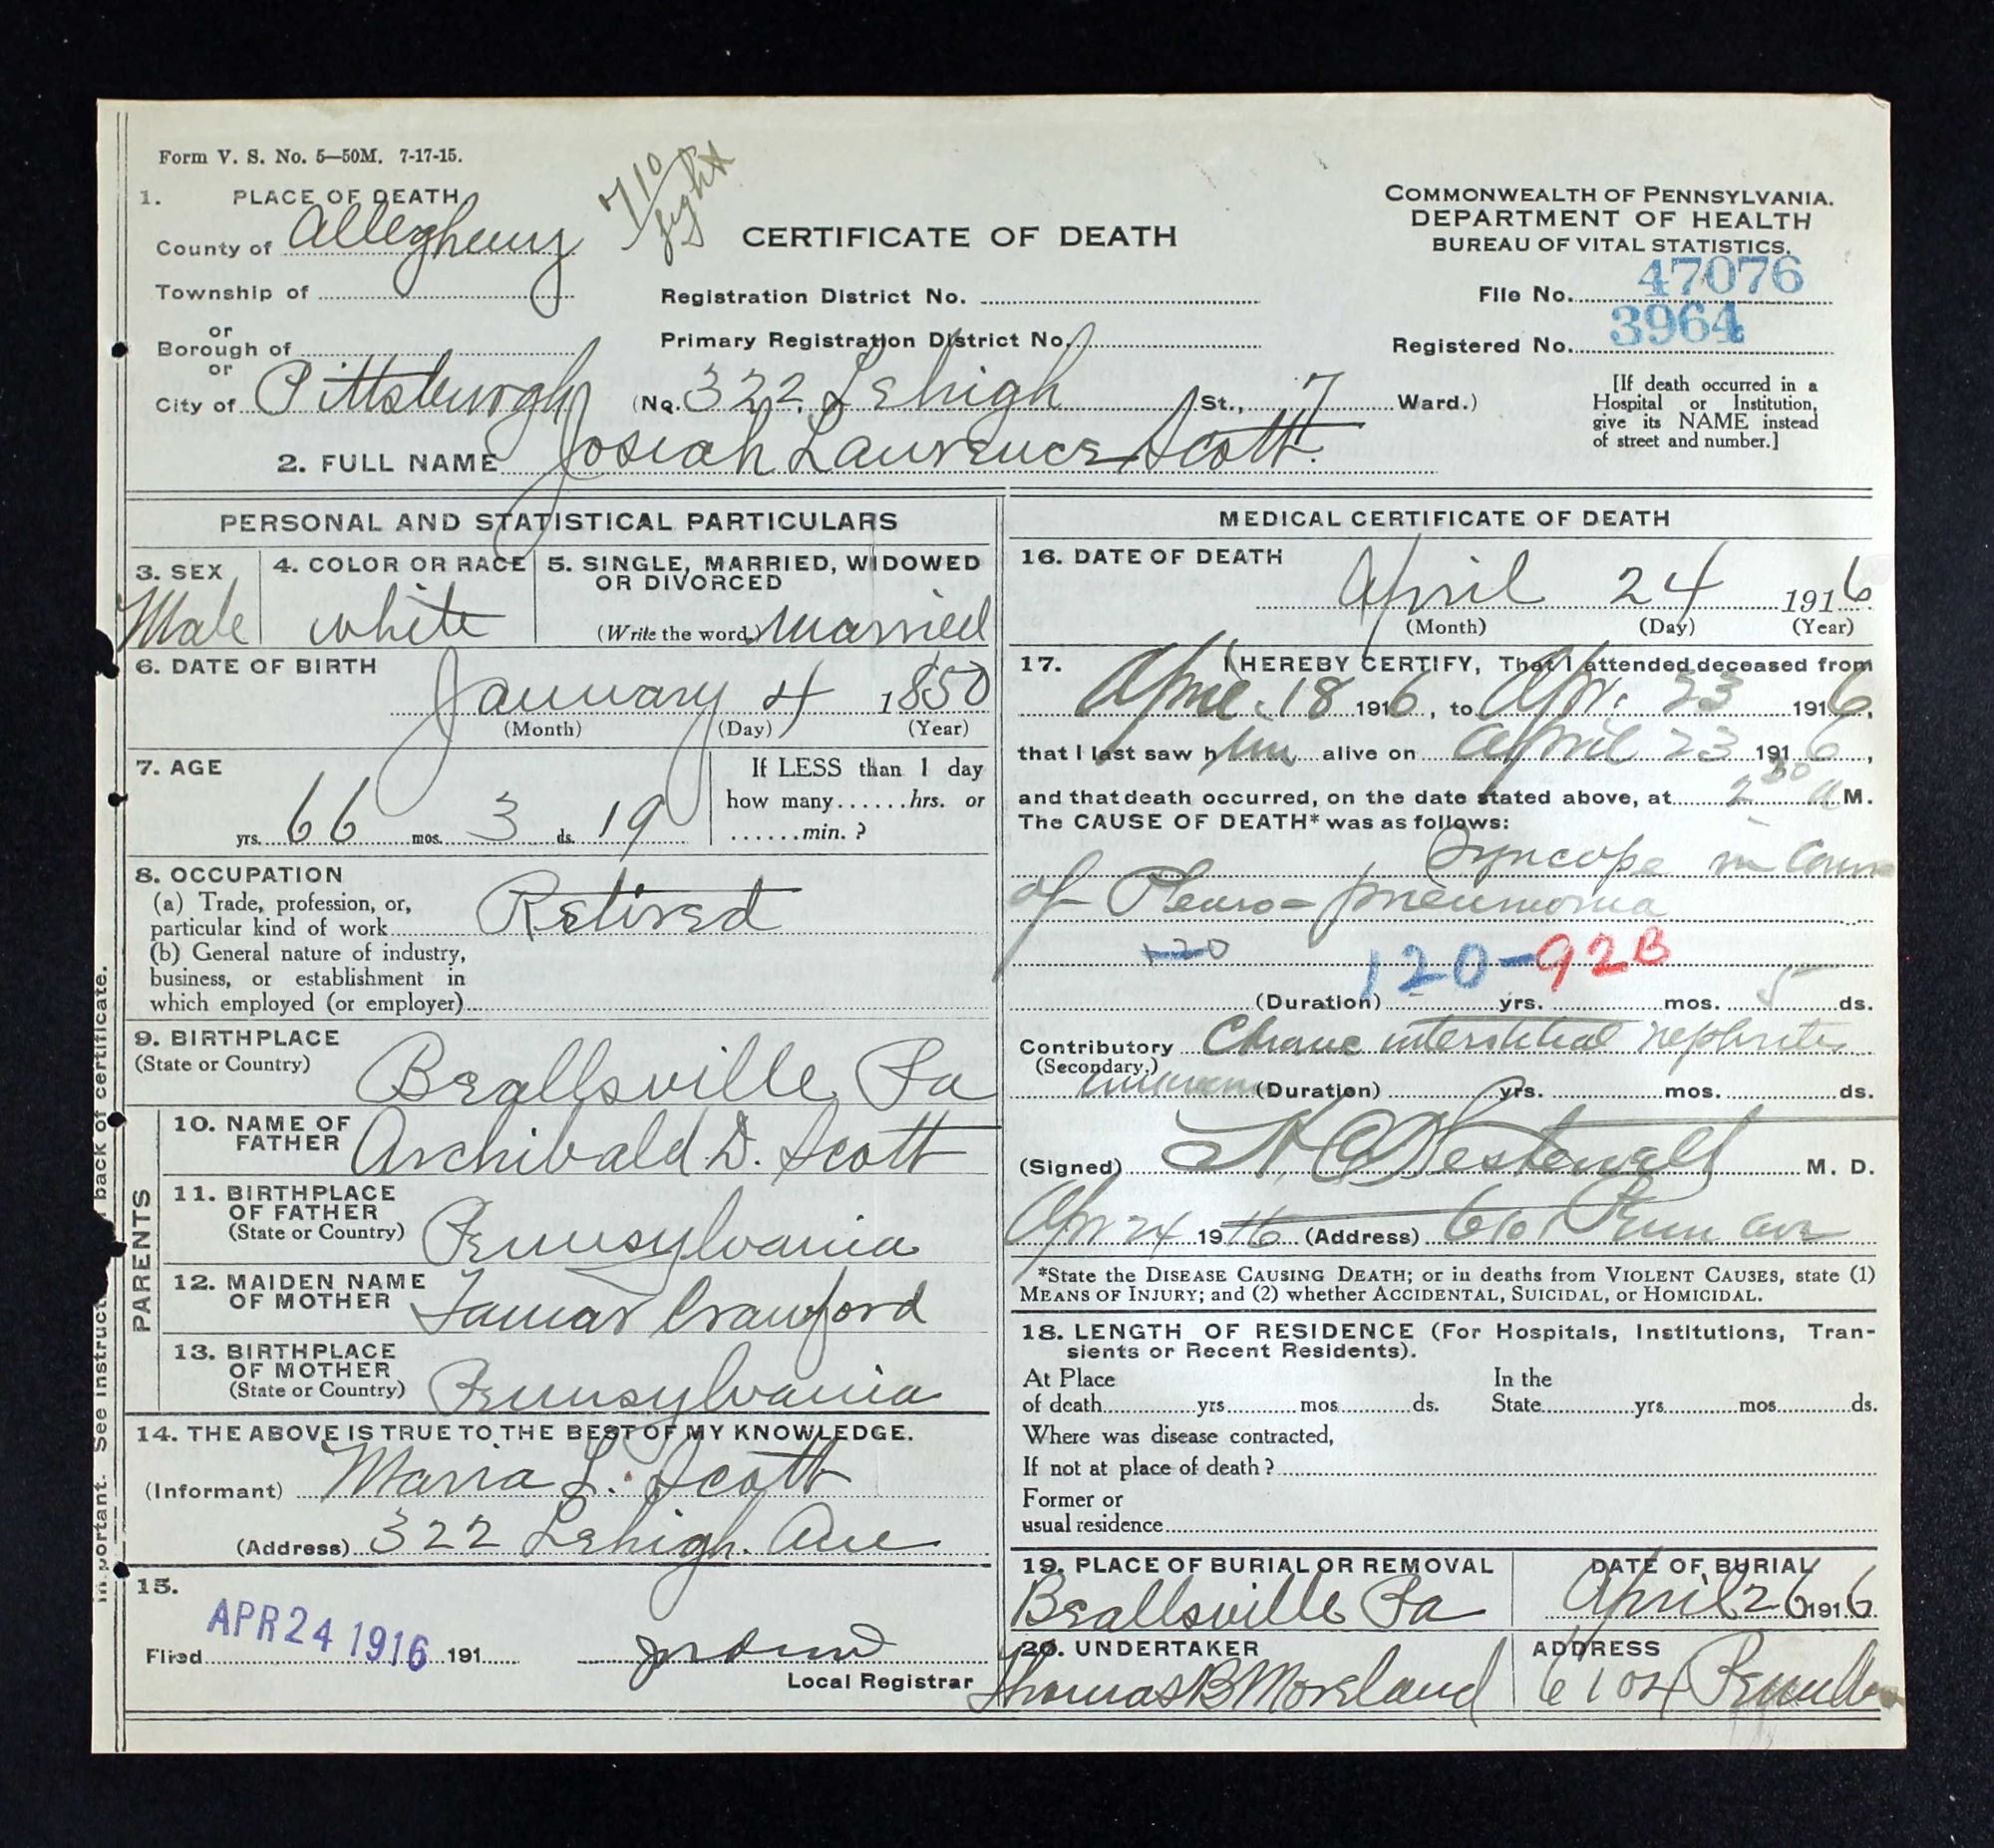 Form V. S. No. 5—50M. 7-17-15.
1. PLACE OF DEATH
County of Allegheny
Township of
or
Borough of
or
City of Pittsburgh
CERTIFICATE OF DEATH
Registration District No.
Primary Registration District No.
(No. 322, Lehigh St., 7 Ward.)
COMMONWEALTH OF PENNSYLVANIA.
DEPARTMENT OF HEALTH
BUREAU OF VITAL STATISTICS.
File No. 47076
Registered No. 3964
[If death occurred in a
Hospital or Institution,
give its NAME instead
of street and number.]
2. FULL NAME Josiah Laurence Scott.
PERSONAL AND STATISTICAL PARTICULARS
3. SEX
Male
4. COLOR OR RACE
white
5. SINGLE, MARRIED, WIDOWED
OR DIVORCED
(Write the word) Married
6. DATE OF BIRTH
January 4 1850
(Month) (Day) (Year)
7. AGE
yrs. 66 mos. 3 ds. 19
If LESS than 1 day
how many......hrs. or
......min. ?
8. OCCUPATION
(a) Trade, profession, or,
particular kind of work Retired
(b) General nature of industry,
business, or establishment in
which employed (or employer)
9. BIRTHPLACE
(State or Country)
Beallsville, Pa
PARENTS
10. NAME OF
FATHER Archibald D. Scott
11. BIRTHPLACE
OF FATHER
(State or Country) Pennsylvania
12. MAIDEN NAME
OF MOTHER Tamar Crawford
13. BIRTHPLACE
OF MOTHER
(State or Country) Pennsylvania
14. THE ABOVE IS TRUE TO THE BEST OF MY KNOWLEDGE.
(Informant) Maria L. Scott
(Address) 322 Lehigh. Ave
15.
Filed APR 24 1916 191
Local Registrar
MEDICAL CERTIFICATE OF DEATH
16. DATE OF DEATH
April 24 1916
(Month) (Day) (Year)
17. I HEREBY CERTIFY, That I attended deceased from
April 18 1916, to Apr. 23 1916,
that I last saw him alive on April 23 1916,
and that death occurred, on the date stated above, at 2 30 a M.
The CAUSE OF DEATH* was as follows:
Syncope in Course
of Pleuro-pneumonia
120
120-92B
(Duration) yrs. mos. 5 ds.
Contributory Chronic interstitial nephritis
(Secondary.)
unknown (Duration) yrs. mos. ds.
(Signed) M. D.
Apr 24 1916 (Address) Penn ave
*State the DISEASE CAUSING DEATH; or in deaths from VIOLENT CAUSES, state (1)
MEANS OF INJURY; and (2) whether ACCIDENTAL, SUICIDAL, or HOMICIDAL.
18. LENGTH OF RESIDENCE (For Hospitals, Institutions, Tran-
sients or Recent Residents).
At Place
of death yrs mos ds.
In the
State yrs mos ds.
Where was disease contracted,
If not at place of death?
Former or
usual residence
19. PLACE OF BURIAL OR REMOVAL
Beallsville Pa
DATE OF BURIAL
April 26 1916
20. UNDERTAKER
Thomas B Moreland
ADDRESS
6104
important. See instruct back of certificate.